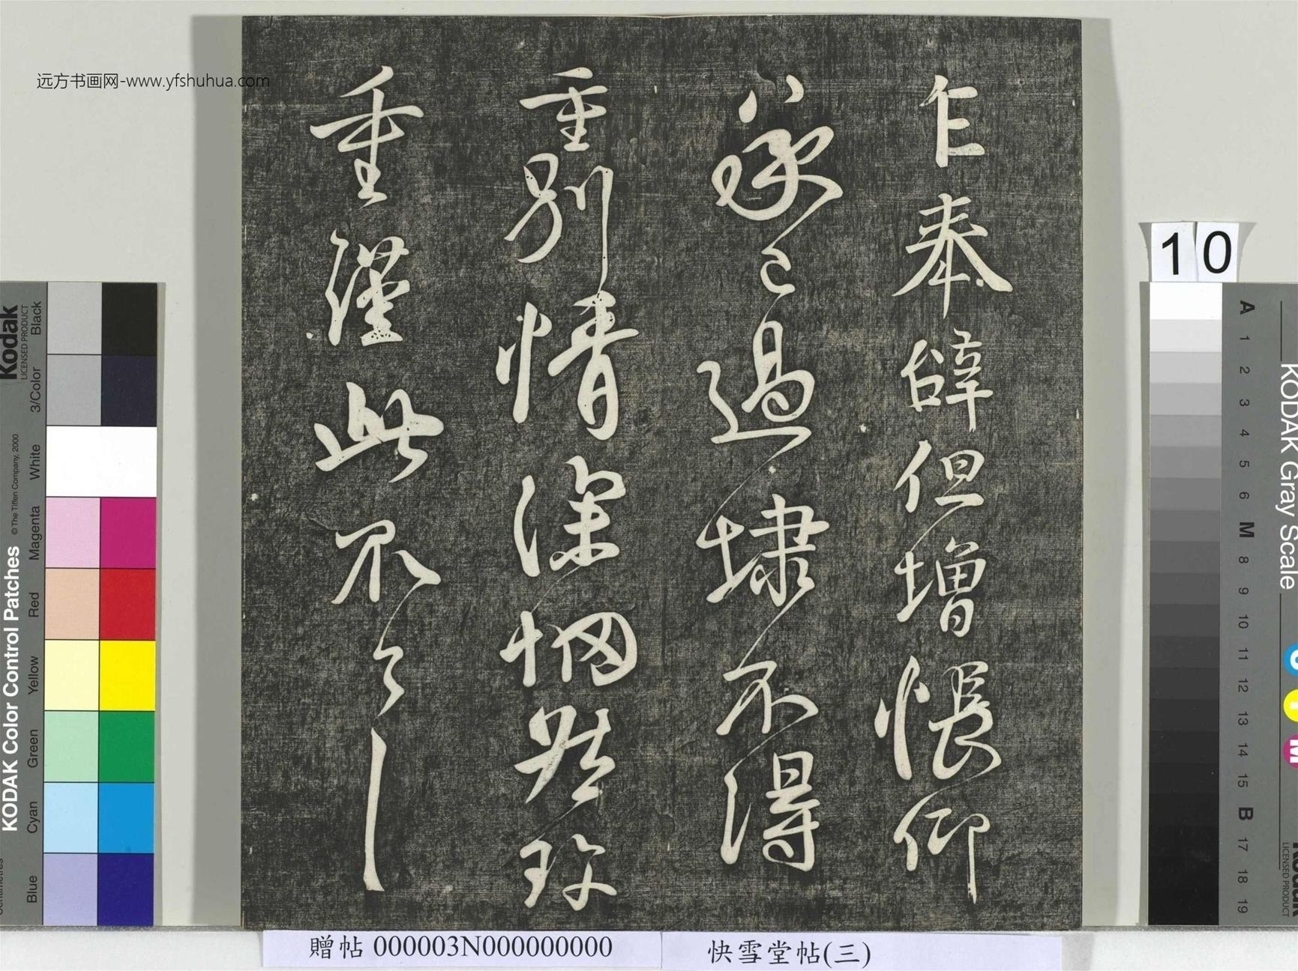 乍奉辭但增悵仰
承已過埭不得
重別情深惘然珍
重謹此不々
远方书画网-www.yfshuhua.com
10
贈帖 000003N000000000
快雪堂帖(三)
Kodak
LICENSED PRODUCT
KODAK Color Control Patches
© The Tiffen Company, 2000
Black
3/Color
White
Magenta
Red
Yellow
Green
Cyan
Blue
KODAK Gray Scale
A 1 2 3 4 5 6 M 8 9 10 11 12 13 14 15 B 17 18 19
C
Y
M